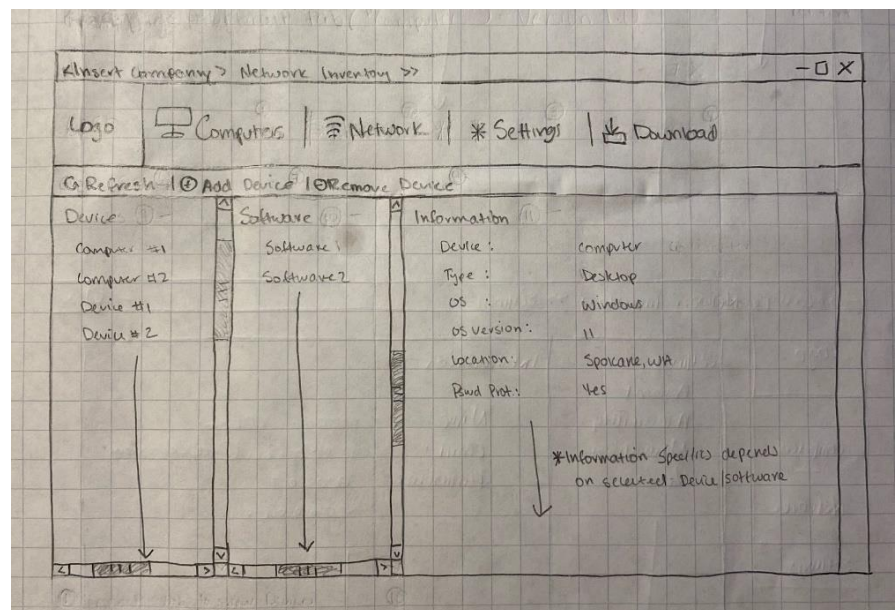 <Insert Company> Network Inventory >>
Logo Computers | Network | * Settings | Download
Refresh | Add Device | Remove Device
Device
Computer #1
Computer #2
Device #1
Device #2
Software
Software 1
Software 2
Information
Device : Computer
Type : Desktop
OS : Windows
OS version : 11
Location : Spokane, WA
Pswd Prot. : Yes
*Information Specifics depends
on selected Device/software